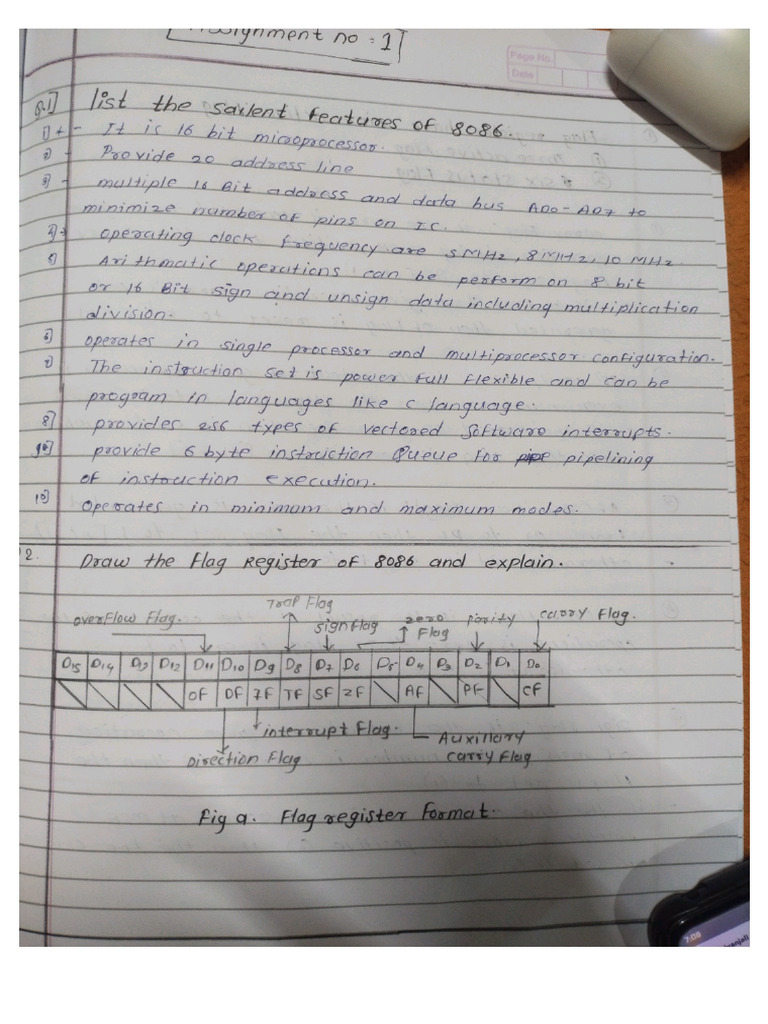 Assignment no : 1
Page No.
Date
Q.1] list the sailent features of 8086.
1] + - It is 16 bit microprocessor.
2) - Provide 20 address line
3) - multiple 16 Bit address and data bus AD0-AD7 to
minimize number of pins on IC.
4) operating clock frequency are 5 MHz, 8 MHz, 10 MHz.
5) Arithmatic operations can be perform on 8 bit
or 16 Bit sign and unsign data including multiplication
division.
6) operates in single processor and multiprocessor configuration.
7) The instruction set is power full flexible and can be
program in languages like c language.
8] provides 256 types of vectored software interrupts.
provide 6 byte instruction Queue for pipelining
of instruction execution.
10] Operates in minimum and maximum modes.
2. Draw the Flag Register of 8086 and explain.
overflow Flag. Trap Flag sign flag zero Flag parity carry Flag.
D15 D14 D13 D12 D11 D10 D9 D8 D7 D6 D5 D4 D3 D2 D1 D0
OF DF IF TF SF ZF AF PF CF
interrupt Flag.
Direction Flag
Auxillary
carry Flag
Fig a. Flag register Format.
7:08